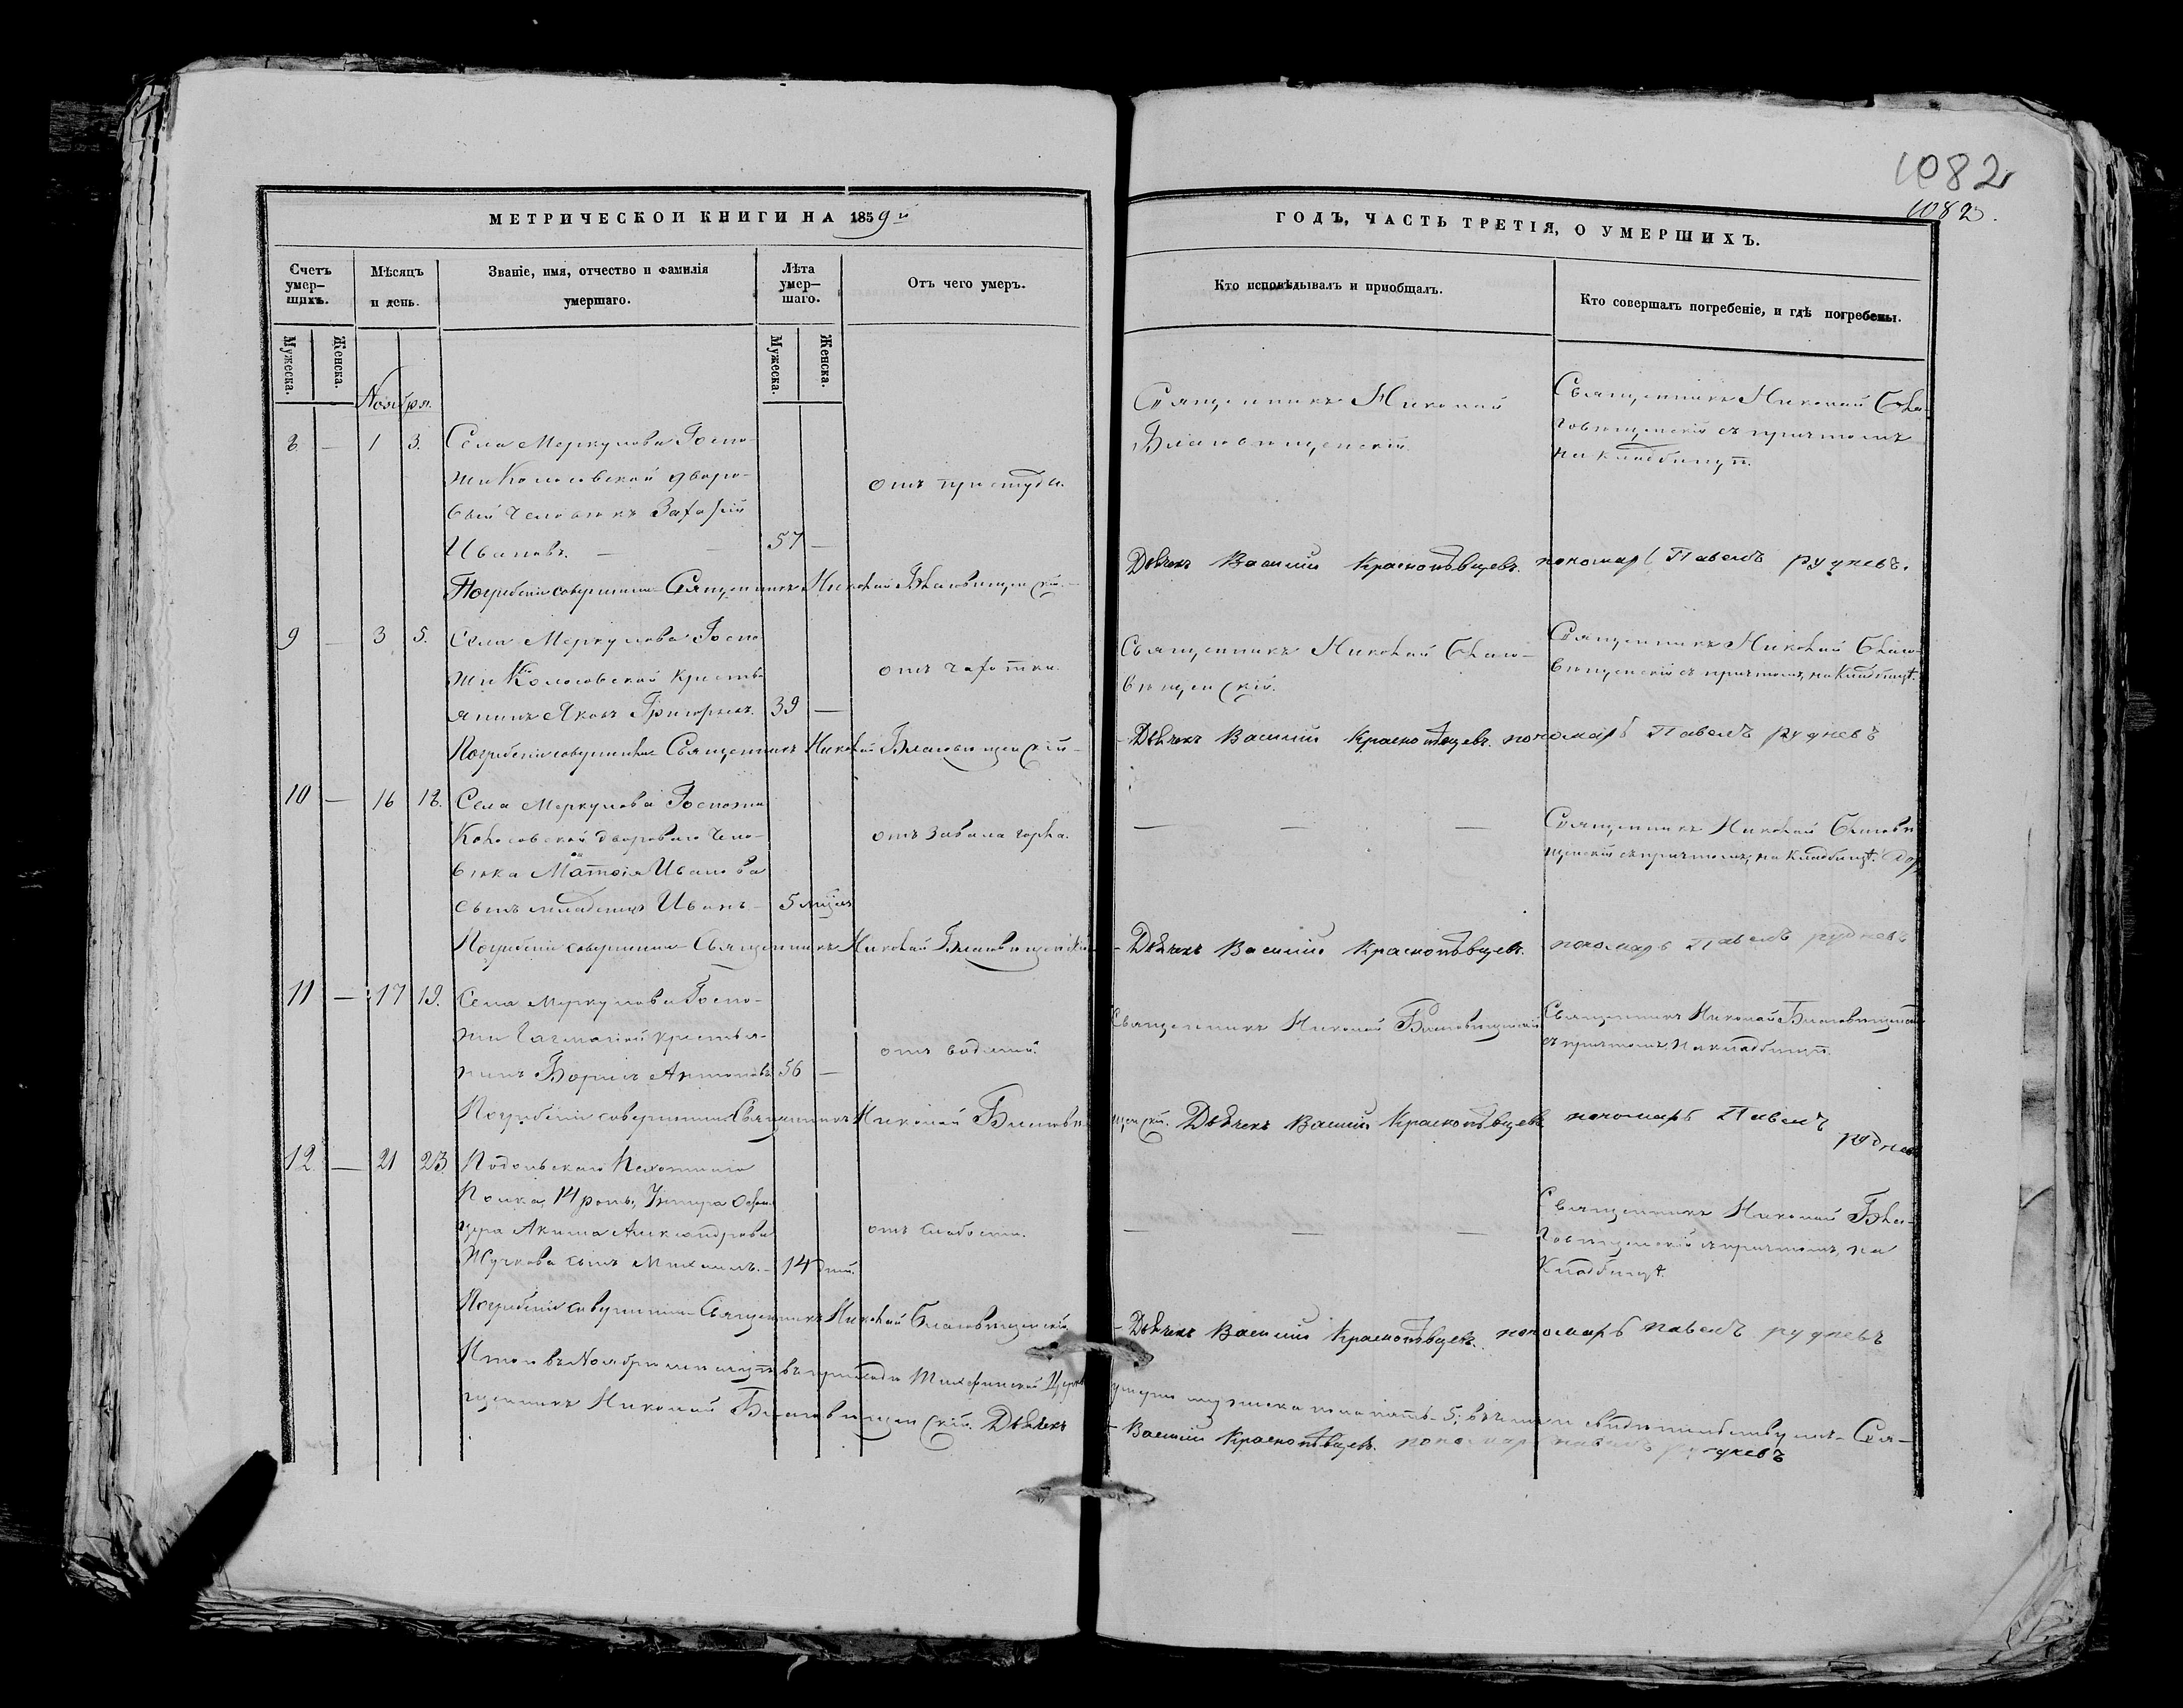 1082
1082.
МЕТРИЧЕСКОЙ КНИГИ НА 1859й
ГОДЪ, ЧАСТЬ ТРЕТІЯ, О УМЕРШИХЪ.
Счетъ умер-шихъ.
Мѣсяцъ и день.
Званіе, имя, отчество и фамилія умершаго.
Лѣта умер-шаго.
Отъ чего умеръ.
Кто исповѣдывалъ и пріобщалъ.
Кто совершалъ погребеніе, и гдѣ погребены.
Мужеска.
Женска.
Мужеска.
Женска.
Ноября.
8 — 1 3. Села Меркулова Госпо-
жи Колосовской дворо-
вый человѣкъ
Ивановъ. — — 57 —
отъ простуды.
Священникъ Николай
Благовѣщенскій.
Священникъ Николай Бла-
говѣщенскій съ причтомъ
на кладбищѣ.
Погребеніе совершали Священникъ Николай Благовѣщенскій.
Дьячекъ Василій Краснопѣвцевъ. пономарь Павелъ Рудневъ.
9 — 3 5. Села Меркулова Госпо
жи Колосовской кресть-
янинъ Яковъ Григорьевъ. 39 —
отъ чахотки.
Священникъ Николай Благо-
вѣщенскій.
Священникъ Николай Благо-
вѣщенскій съ причтомъ, на Кладбищѣ.
Погребеніе совершали Священникъ Николай Благовѣщенскій
Дьячекъ Василій Краснопѣвцевъ. пономарь Павелъ Рудневъ
10 — 16 18. Села Меркулова Госпожи
Колосовской двороваго чело-
вѣка Иванова
сынъ младенецъ Иванъ. — 5 мѣсяц.
отъ завала горла.
— — —
Священникъ Николай Благовѣ
щенскій съ причтомъ, на Кладбищѣ.
Погребеніе совершали Священникъ Николай Благовѣщенскій
Дьячекъ Василій Краснопѣвцевъ. пономарь Павелъ Рудневъ
11 — 17 19. Села Меркулова Госпо-
жи крестья-
нинъ Борисъ Антоновъ 56 —
отъ водяной.
Священникъ Николай Благовѣщенскій
Священникъ Николай Благовѣщенскій
съ причтомъ, на кладбищѣ.
Погребеніе совершали Священникъ Николай Благовѣщенскій. Дьячекъ Василій Краснопѣвцевъ пономарь Павелъ
Рудневъ
12. — 21 23 Подольскаго Пехотнаго
Полка, 14 роты, Унтера Офи-
цера Акима Александрова
Жучкова сынъ Михаилъ. — 14 дней.
отъ слабости.
— — —
Священникъ Николай Бла-
говѣщенскій съ причтомъ, на
Кладбищѣ.
Погребеніе совершали Священникъ Николай Благовѣщенскій
Дьячекъ Василій Краснопѣвцевъ. пономарь Павелъ Рудневъ
Итого въ Ноябрѣ мѣсяцѣ въ приходѣ Церкви умерло мужеска пола пять — 5; въ чемъ свидѣтельствуемъ — Свя-
щенникъ Николай Благовѣщенскій. Дьячекъ Василій Краснопѣвцевъ. пономарь Павелъ Рудневъ